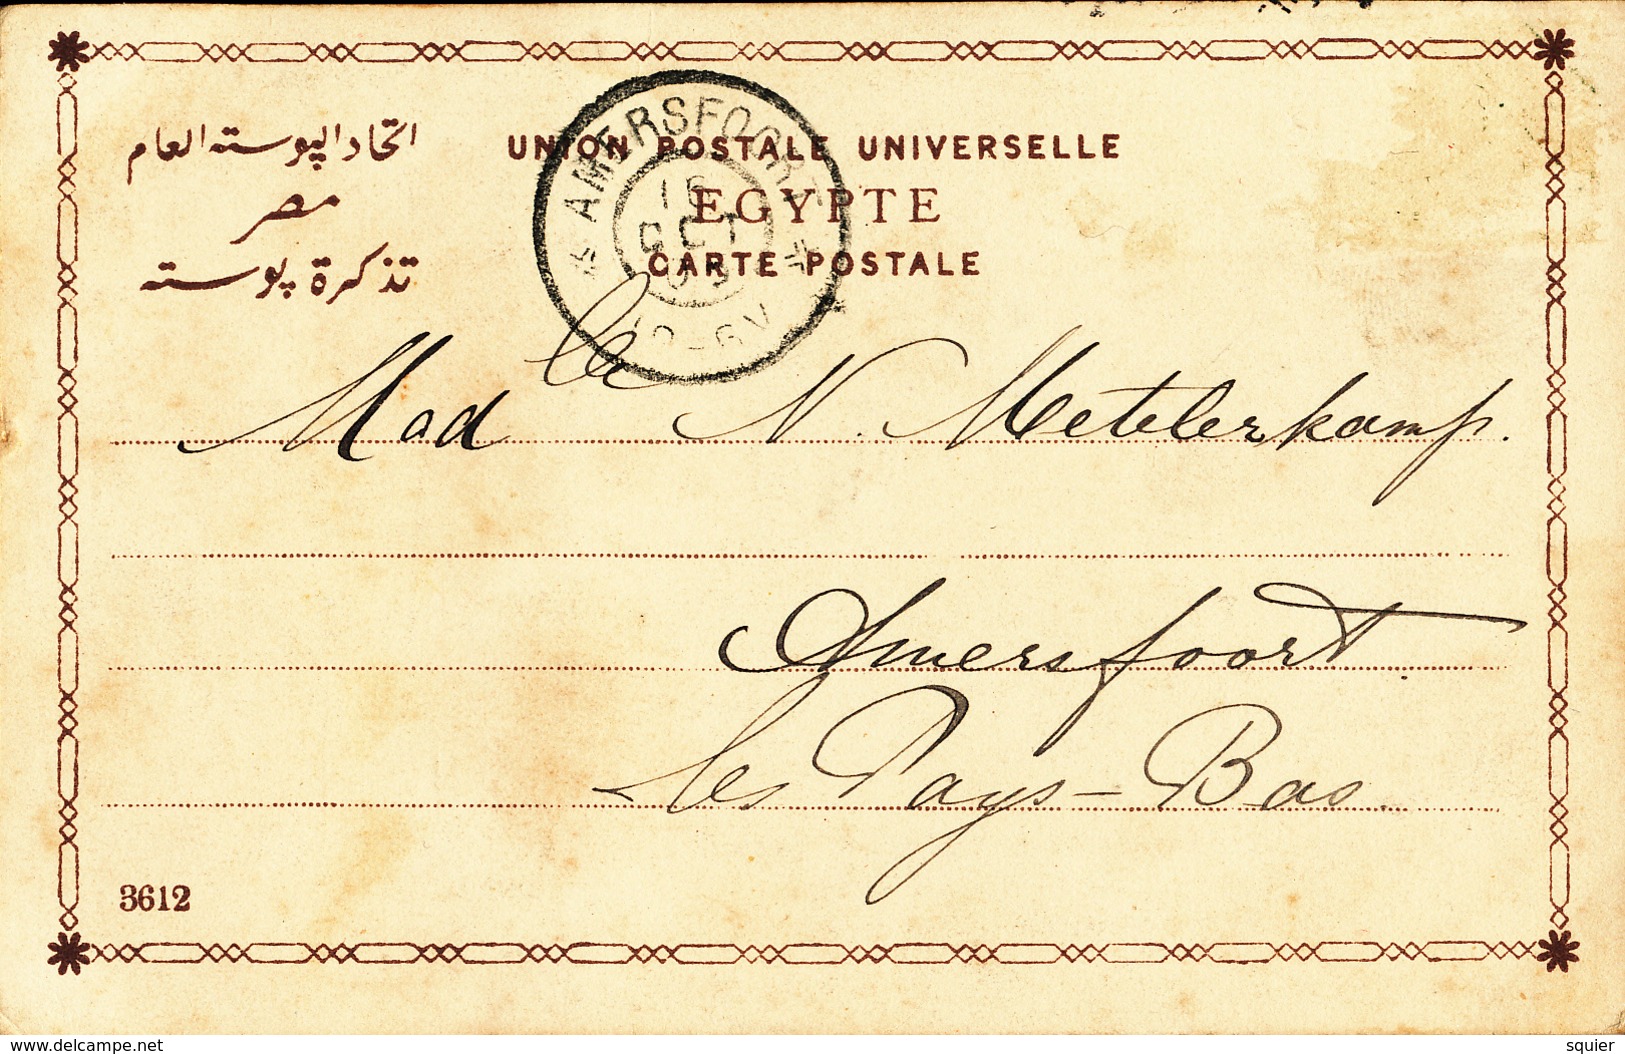 اتحاد البوسته العام
مصر
تذكرة بوسته
UNION POSTALE UNIVERSELLE
EGYPTE
CARTE POSTALE
AMERSFOORT
OCT
Madlle N. Metelerkamp.
Amersfoort
les Pays-Bas.
3612
www.delcampe.net
squier